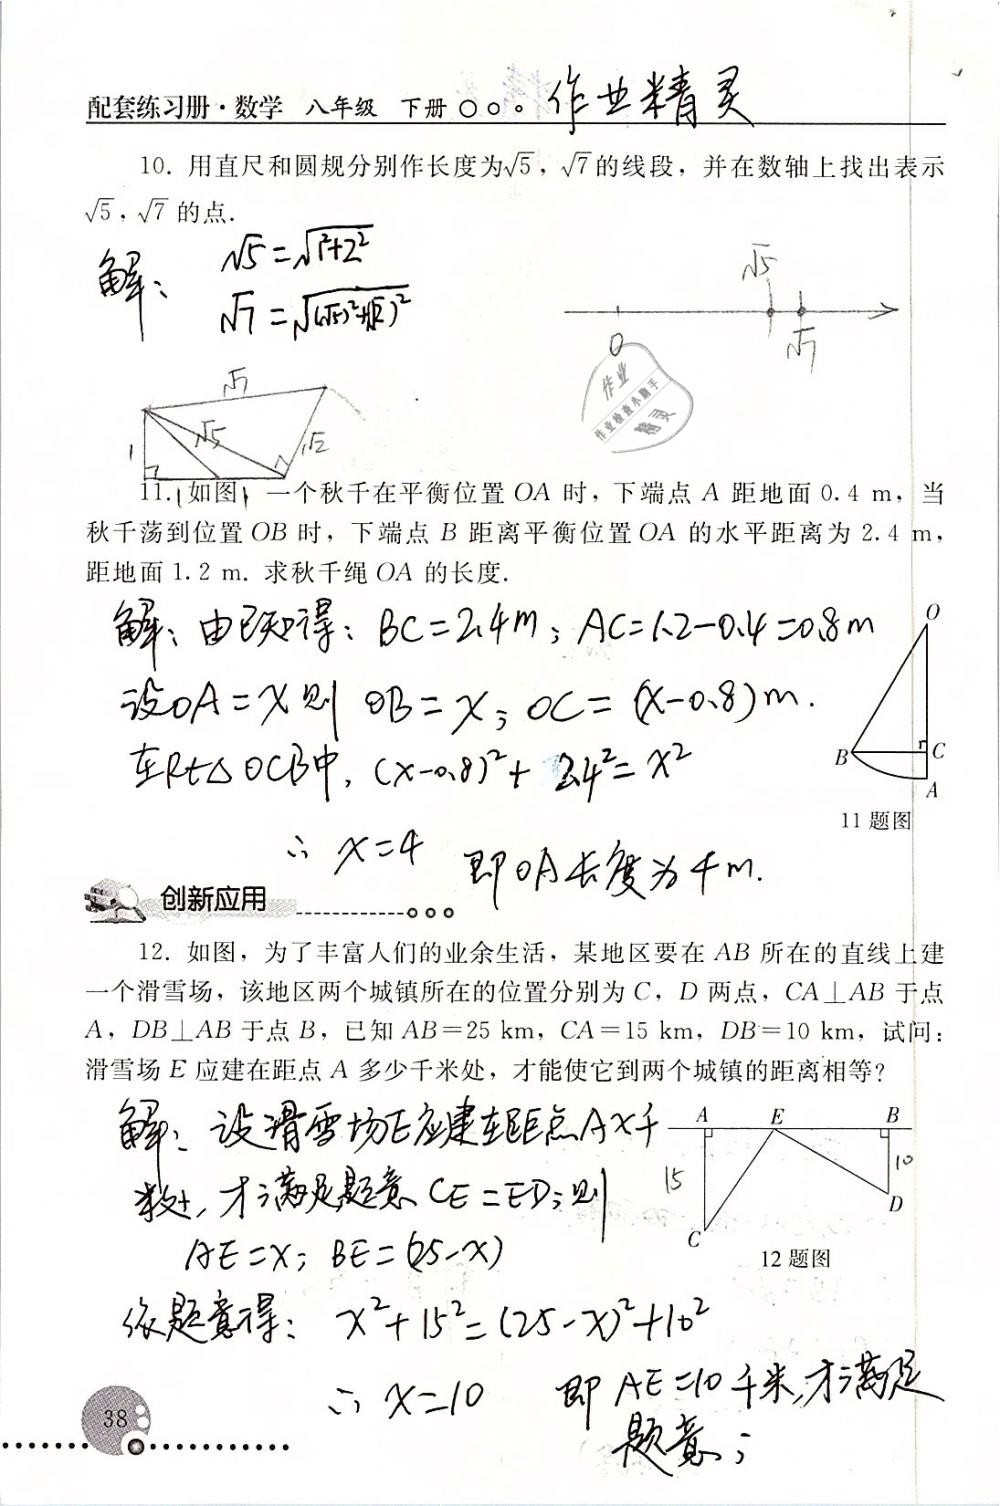 配套练习册·数学 八年级 下册 作业精灵
10. 用直尺和圆规分别作长度为√5，√7的线段，并在数轴上找出表示
√5，√7的点.
解： √5=√1²+2²
√7=√(√5)²+(√2)²
√5
0 √7
作业
作业检查小助手
精灵
√7
1 √5 √2
1 1
11. 如图，一个秋千在平衡位置 OA 时，下端点 A 距地面 0.4 m，当
秋千荡到位置 OB 时，下端点 B 距离平衡位置 OA 的水平距离为 2.4 m，
距地面 1.2 m. 求秋千绳 OA 的长度.
解：由已知得：BC=2.4m；AC=1.2-0.4=0.8m
设OA=x则 OB=x；OC=(x-0.8)m.
在Rt△OCB中，(x-0.8)²+2.4²=x²
∴ x=4 即OA长度为4m.
O
B C
A
11 题图
创新应用
12. 如图，为了丰富人们的业余生活，某地区要在 AB 所在的直线上建
一个滑雪场，该地区两个城镇所在的位置分别为 C，D 两点，CA⊥AB 于点
A，DB⊥AB 于点 B，已知 AB=25 km，CA=15 km，DB=10 km，试问：
滑雪场 E 应建在距点 A 多少千米处，才能使它到两个城镇的距离相等?
解：设滑雪场E应建在距点A x千
米处，才满足题意 CE=ED；则
AE=x；BE=(25-x)
依题意得：x²+15²=(25-x)²+10²
∴ x=10 即AE=10千米，才满足
题意；
A E B
15 10
C D
12 题图
38